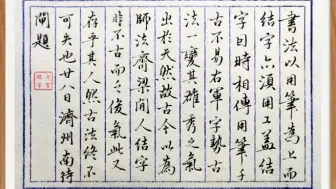 書法以用筆為上而
結字亦須用工蓋結
字因時相傳用筆千
古不易右軍字勢古
法一變其雄秀之氣
出於天然故古今以為
師法齊梁間人結字
非不古而乏俊氣此又
存乎其人然古法終不
可失也廿八日濟州南待
閘題